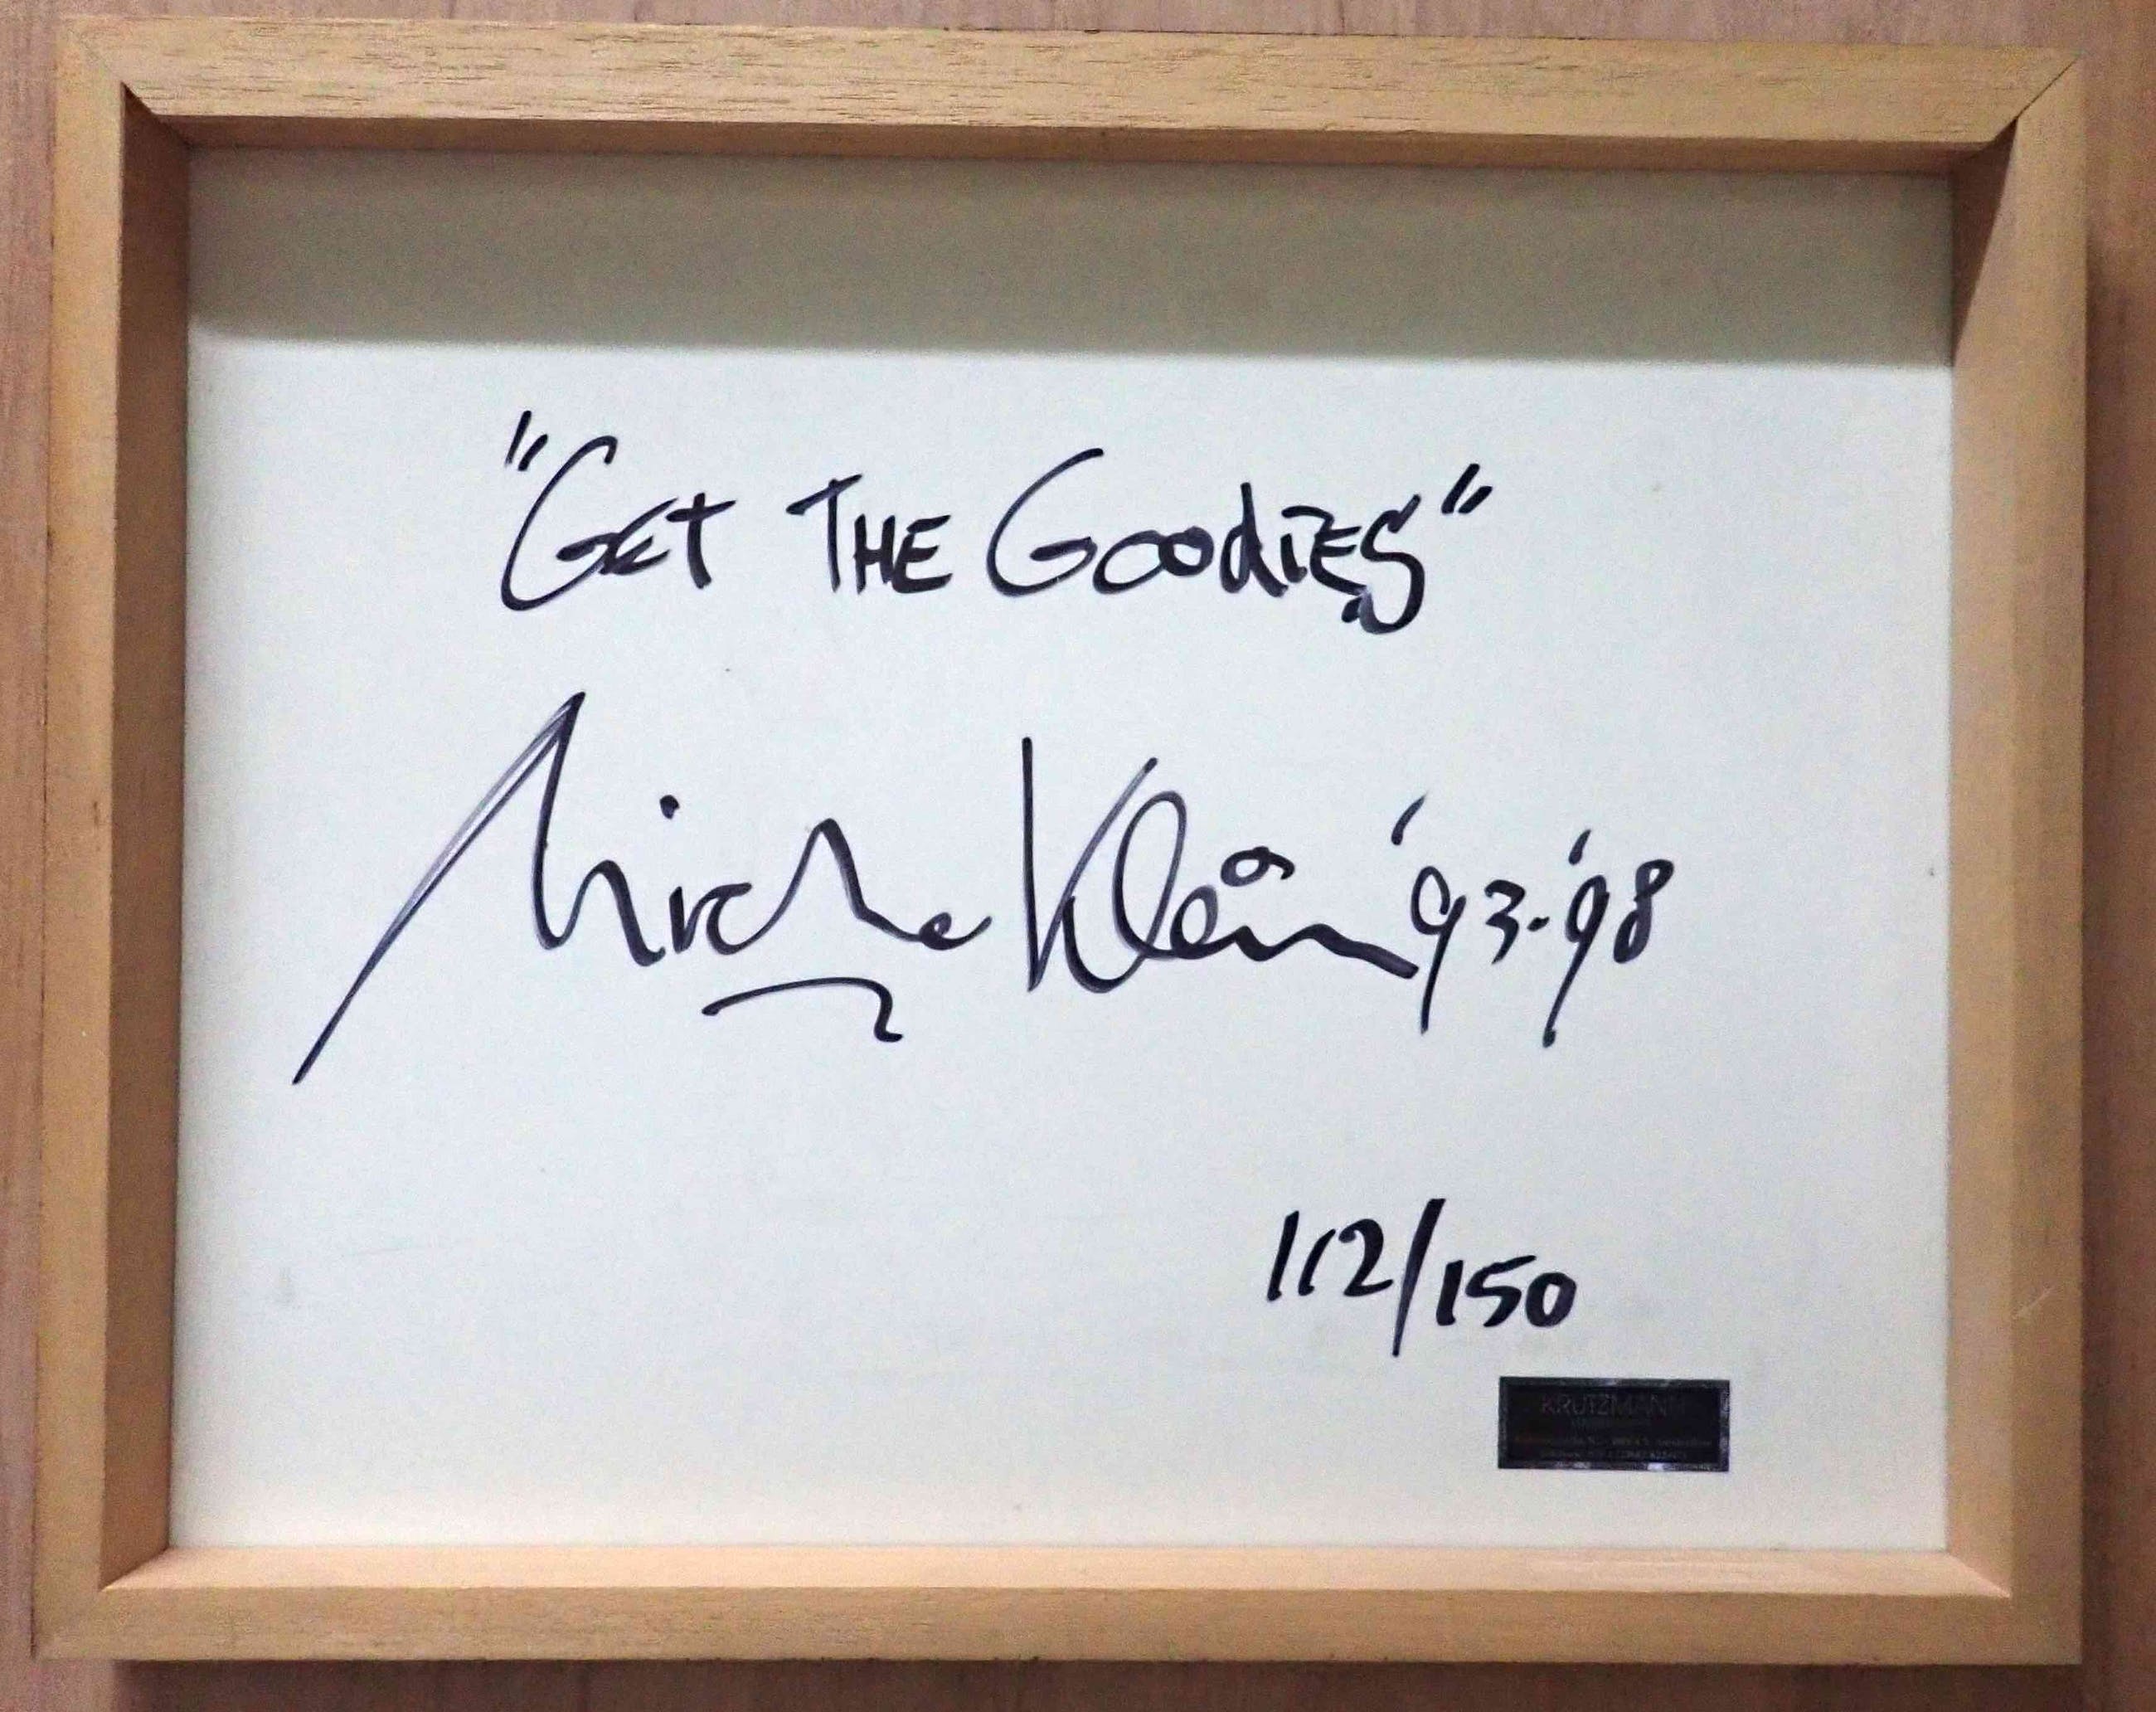 "GET THE GOODIES"
Micha Klein '93-'98
112/150
KRUTZMANN